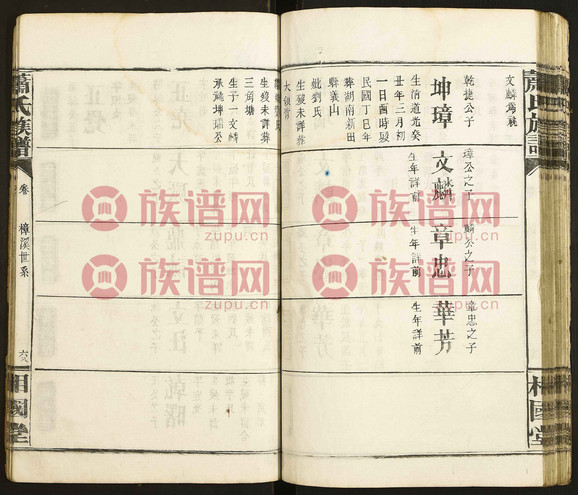 文麟爲嗣
乾捷公子
坤璋
生清道光癸
丑年三月初
一日酉時歿
民國丁巳年
葬湖南新田
縣義山
妣劉氏
生歿未詳葬
大嶺背
生歿未詳葬
三角塘
生子一文麟
承繼坤瑞公
璋公之子
文麟
生年詳前
麟公之子
章忠
生年詳前
章忠之子
華芳
生年詳前
蕭氏族譜
卷
樟溪世系
六八
相國堂
蕭氏族譜
相國堂
族谱网
zupu.cn
族谱网
zupu.cn
族谱网
zupu.cn
族谱网
zupu.cn